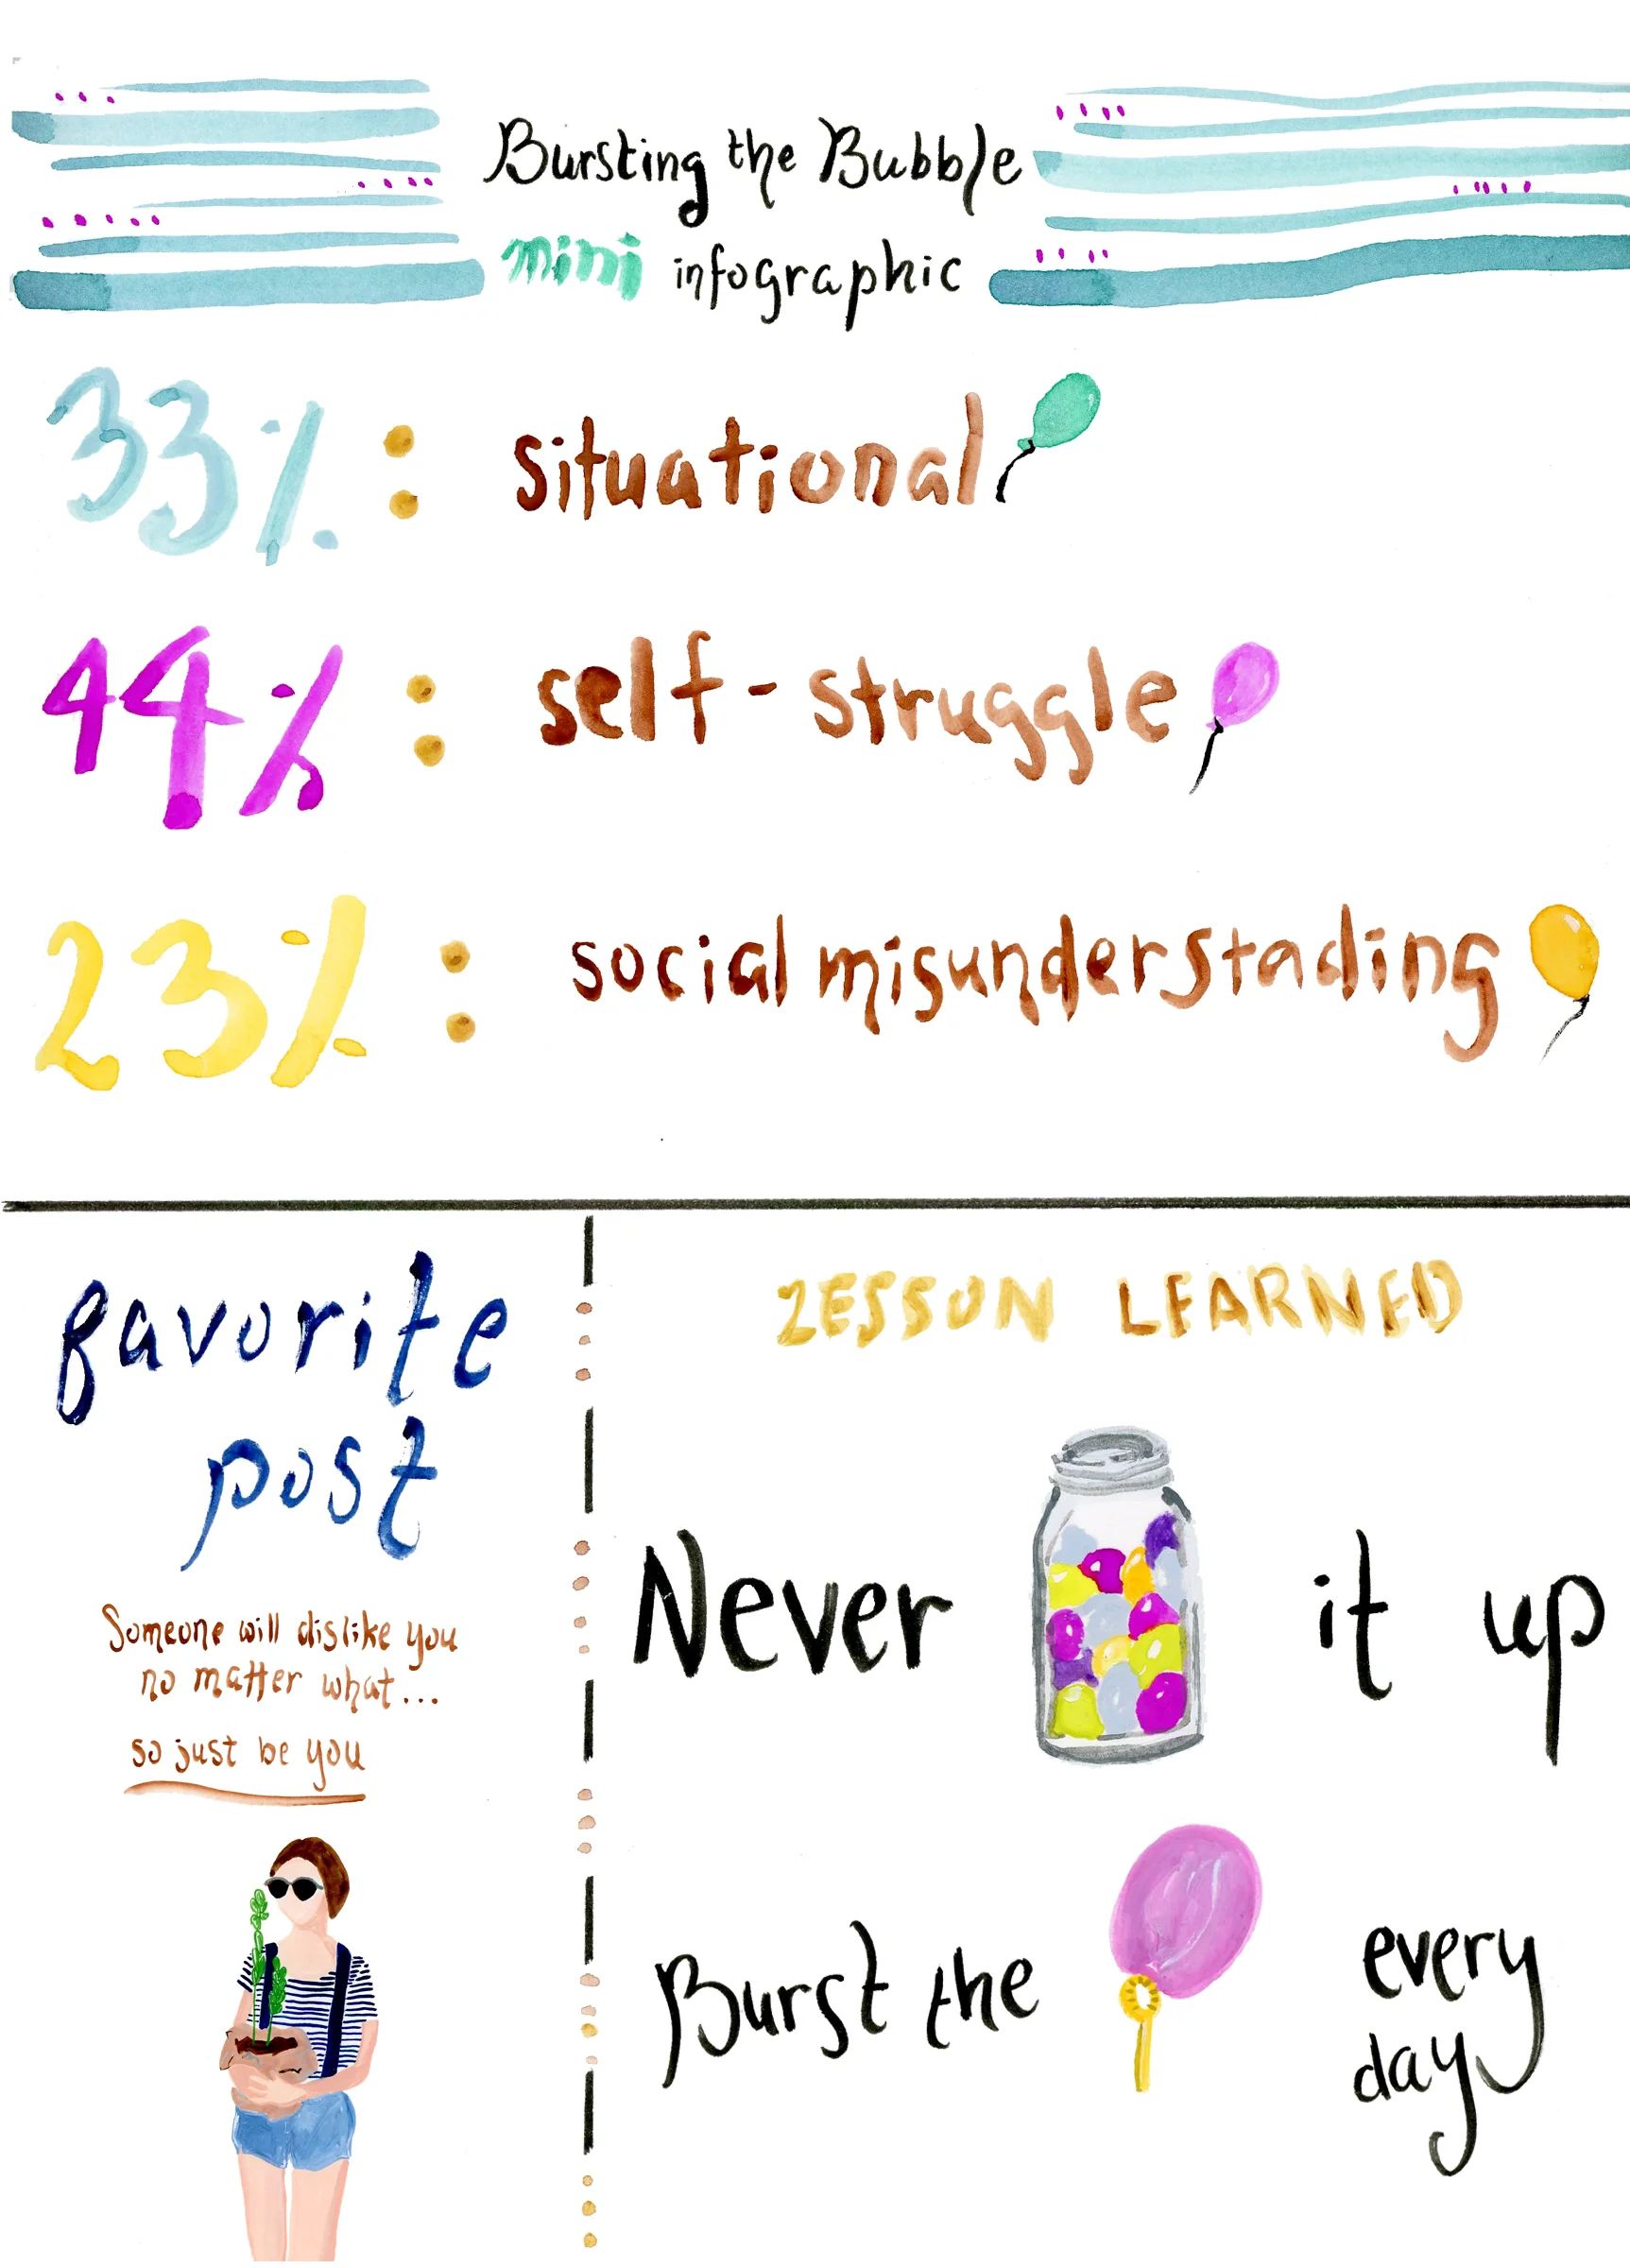 Bursting the Bubble
mini infographic
33% : situational
44% : self-struggle
23% : social misunderstading
favorite
post
Someone will dislike you
no matter what...
so just be you
LESSON LEARNED
Never it up
Burst the every
day